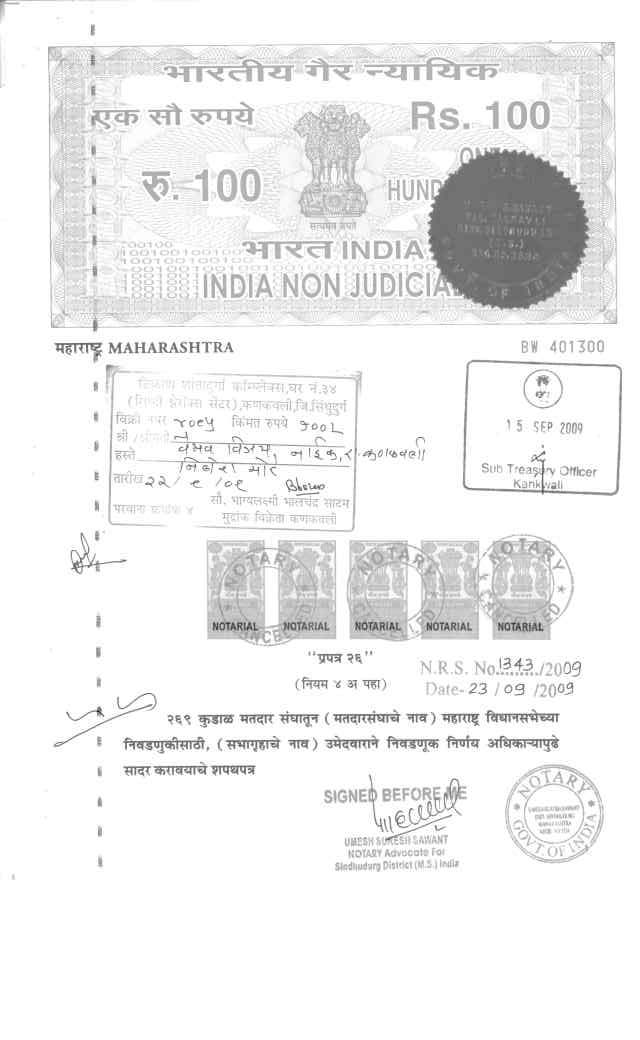 भारतीय गैर न्यायिक
एक सौ रुपये
Rs. 100
रु. 100
ONE
HUND
सत्यमेव जयते
भारत INDIA
INDIA NON JUDICIA
GOVT. OF INDIA
महाराष्ट्र MAHARASHTRA
BW 401300
ठिकाण शांतादुर्गा कॉम्प्लेक्स,घर नं.३४
(निकी झेरॉक्स सेंटर),कणकवली,जि.सिंधुदुर्ग
विक्री नंबर किंमत रुपये १००८
श्री /श्रीमती वैभव विजय नाईक, र. कणकवली
हस्ते निलेश मोर
तारीख २२/९/०९
सौ. भाग्यलक्ष्मी भालचंद्र साटम
परवाना क्रमांक ४ मुद्रांक विक्रेता कणकवली
15 SEP 2009
Sub Treasury Officer
Kankwali
NOTARIAL NOTARIAL NOTARIAL NOTARIAL NOTARIAL
NOTARY CANCELLED
NOTARY CANCELLED
NOTARY CANCELLED
"प्रपत्र २६"
(नियम ४ अ पहा)
N.R.S. No.1343/2009
Date- 23/09/2009
२६९ कुडाळ मतदार संघातून ( मतदारसंघाचे नाव ) महाराष्ट्र विधानसभेच्या
निवडणुकीसाठी, ( सभागृहाचे नाव ) उमेदवाराने निवडणूक निर्णय अधिकाऱ्यापुढे
सादर करावयाचे शपथपत्र
SIGNED BEFORE ME
UMESH SURESH SAWANT
NOTARY Advocate For
Sindhudurg District (M.S.) India
NOTARY
GOVT.OF INDIA